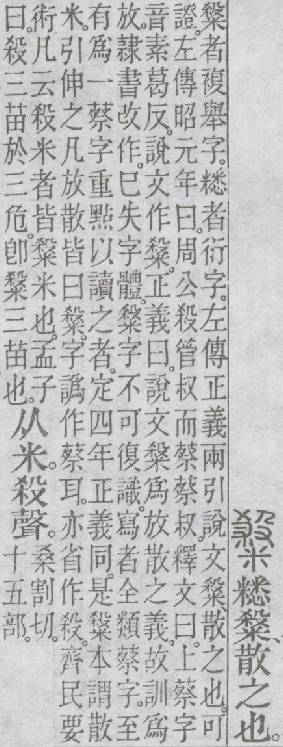 糳米。𥻦䊛、散之也。
䊛者複舉字。𥻦者衍字。左傳正義兩引說文䊛、散之也。可
證。左傳昭元年曰。周公殺管叔而蔡蔡叔。釋文曰。上蔡字
音素葛反。說文作䊛。正義曰。說文䊛爲放散之義。故訓爲
放。隸書改作。巳失字體。䊛字不可復識。寫者全類蔡字。至
有爲一蔡字重㸃以讀之者。定四年正義同。是䊛本謂散
米。引伸之凡放散皆曰䊛。字譌作蔡耳。亦省作殺。齊民要
術凡云殺米者皆䊛米也。孟子
曰。殺三苗於三危。卽䊛三苗也。从米。殺聲。桑割切。十五部。